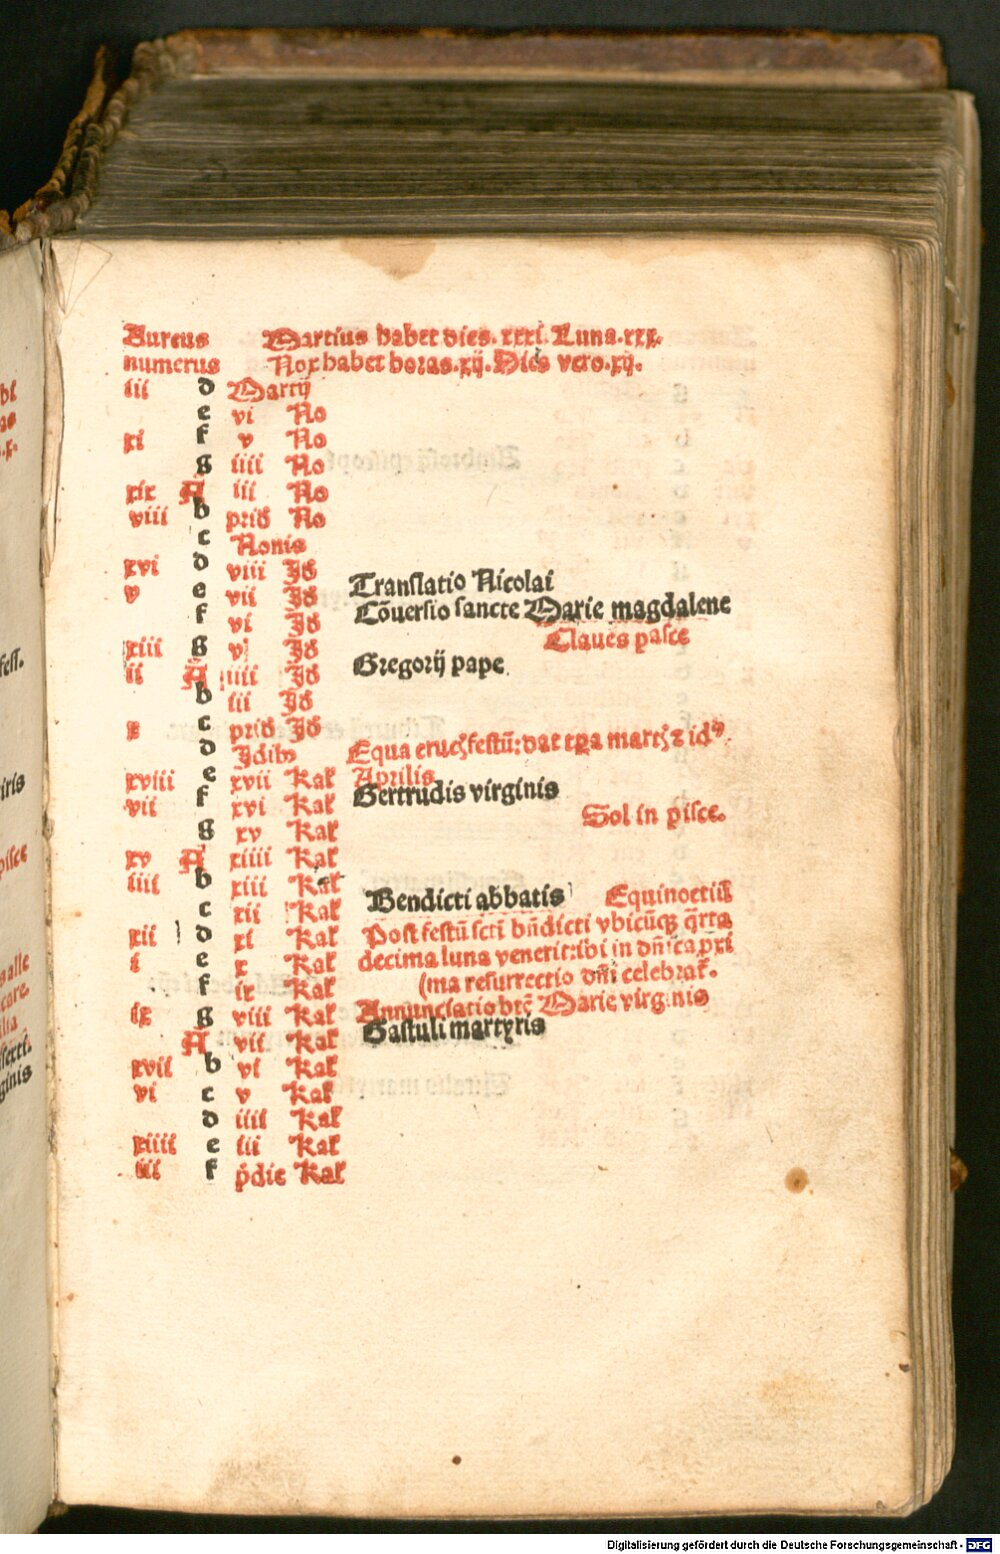 Aureus Martius habet dies. xxxi. Luna. xxx.
numerus Nox habet horas. xij. Dies vero. xij.
iii d Martij
e vi No
xi f v No
g iiii No
xix A iii No
viii b prid No
c Nonis
xvi d viii Id Translatio Nicolai
v e vii Id Cōuersio sancte Marie magdalene
f vi Id Claues pasce
xiii g v Id Gregorij pape
ii A iiii Id
b iii Id
x c prid Id
d Idibꝰ Equa cruc festū: dat marcꝫ ⁊ idꝰ
xviii e xvii Kal̄ Aprilis
vii f xvi Kal̄ Gertrudis virginis
g xv Kal̄ Sol in pisce.
xv A xiiii Kal̄
iiii b xiii Kal̄
c xii Kal̄ Bendicti abbatis Equinoctiū
xii d xi Kal̄ Post festū scti bn̄dicti vbicūqꝫ q̄rta
i e x Kal̄ decima luna venerit: ibi in dn̄ica pxi
f ix Kal̄ (ma resurrectio dn̄i celebrat̄.
ix g viii Kal̄ Annunciatio btē Marie virginis
A vii Kal̄ Gastuli martyris
xvii b vi Kal̄
vi c v Kal̄
d iiii Kal̄
xiiii e iii Kal̄
iii f p̄die Kal̄
Digitalisierung gefördert durch die Deutsche Forschungsgemeinschaft - DFG